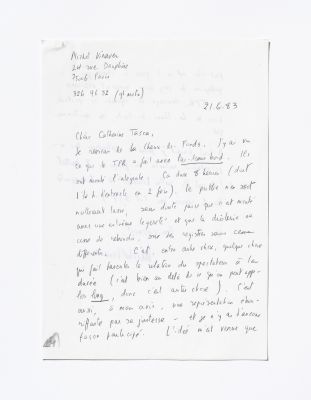 Michel Vinaver
24 rue Dauphine
75006 Paris
326 96 32 (
21.6.83
Chère Catherine Tasca,
Je reviens de La Chaux-de-Fonds. J'y ai vu
ce que le TPR a fait avec Par-dessus bord. Ils
ont monté l'intégrale. Ça dure 8 heures (dont
1 h ½ d'entracte en 2 fois). Le public n'en sort
nullement lassé, sans doute parce que c'est monté
avec une extrême légèreté et que la
cesse de rebondir, sur des registres sans cesse
différents. C'est, entre autre chose, quelque chose
qui fait la relation du spectateur à la
durée (c'est bien au delà de ce qu'on peut appe-
ler long, donc c'est autre chose). C'est
aussi, à mon avis, une représentation
par sa justesse - et je n'y ai d'aucune
façon participé. L'idée m'est venue que